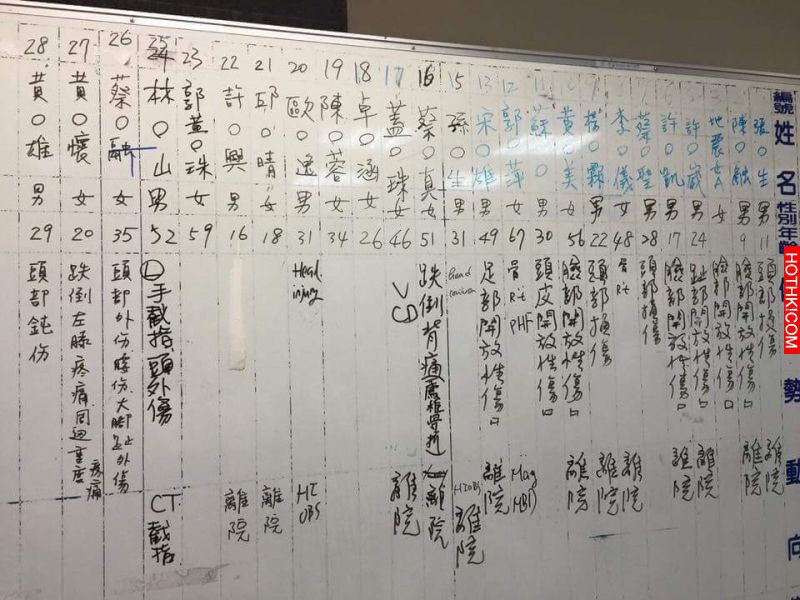 編號 姓名 性別 年齡 傷勢 動向
張○生 男 11 頭部損傷 離院
陳○融 男 9 臉部開放性傷口 離院
3 地震 女 臉部開放性傷口
許○崴 男 24 趾部開放性傷口 離院
許○凱 男 17 臉部開放性傷口 離院
蔡○聖 男 28 頭部損傷
李○儀 女 48 骨 Rt 離院
楊○霖 男 22 頭部損傷 離院
黃○美 女 56 臉部開放性傷口 離院
11 蘇○ 男 30 頭皮開放性傷口
12 郭○萍 女 67 骨 Rt PHF MBD
13 宋○雄 男 49 足部開放性傷口 離院
15 孫○生 男 31 離院
16 蔡○真 女 51 跌倒背痛 離院
17 蓋○珠 女 46 V CD 離院
18 卓○涵 女 26
19 陳○蓉 女 34
20 歐○逸 男 31 Head injury OBS
21 邱○晴 女 18 離院
22 許○興 男 16 離院
23 郭黃○珠 女 59
24 林○山 男 52 L手截指頭外傷 CT 截指
26 蔡○融 女 35 頭部外伤 腰伤 大腳趾外傷
27 黃○懷 女 20 跌倒左膝疼痛 疼痛
28 黃○雄 男 29 頭部鈍伤
HOTHKI.COM